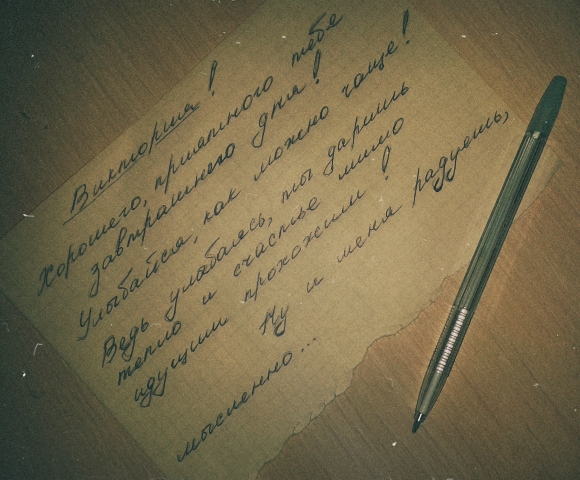 Виктория!
Хорошего, приятного тебе
завтрашнего дня!
Улыбайся, как можно чаще!
Ведь улыбаясь, ты даришь
тепло и счастье мимо
идущим прохожим!
Ну и меня радуешь,
мысленно...